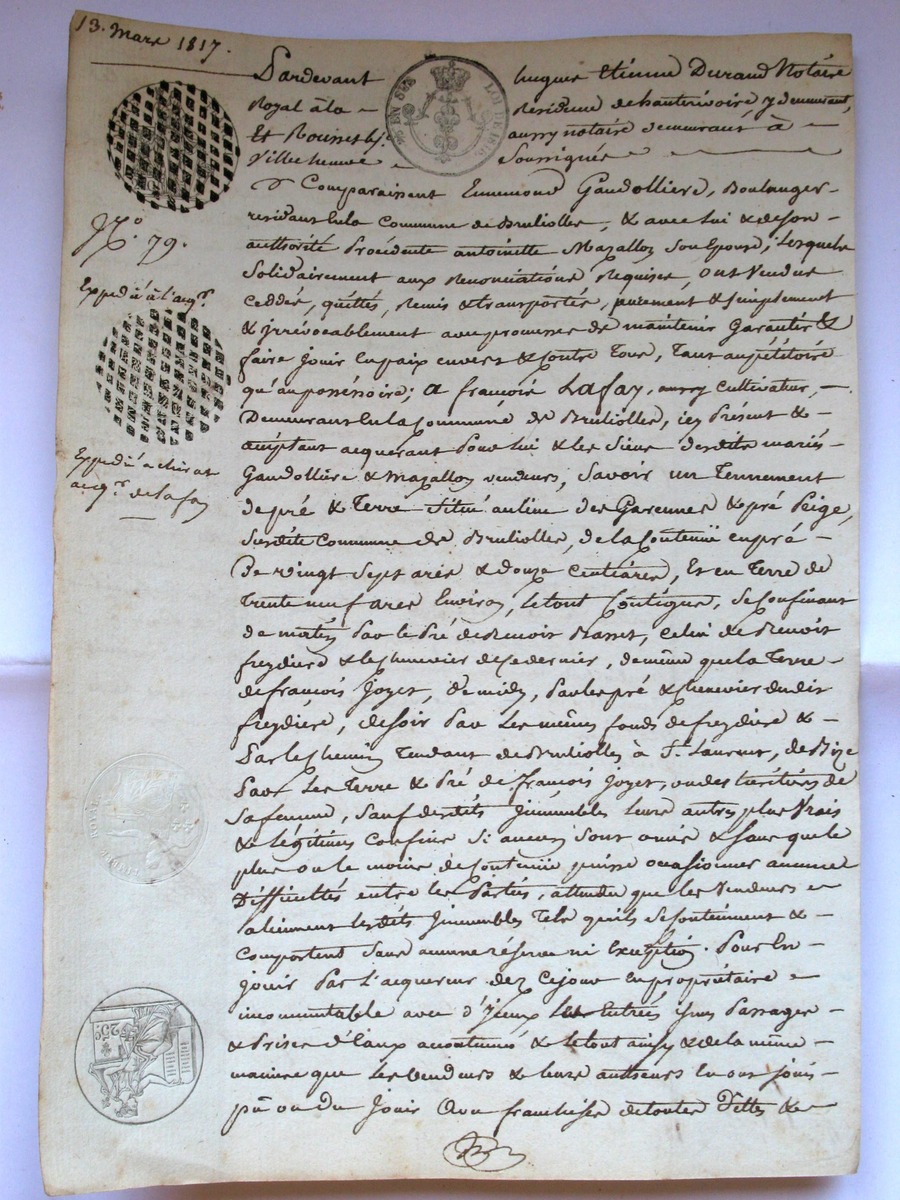 13. Mars 1817.
Pardevant hugues Etienne Durand Notaire
Royal à la Residence de hauterivoire, y demeurant,
Et aussy notaire demeurant à
Villecheneve Soussignés
Comparaissent Ennemond Gaudollière, Boulanger
residant en la Commune de Brulioles, & avec lui & de son
authorité Procédante antoinette Mazallon son Epouse, Lesquels
Solidairement aux Renonciations Requises, ont Vendus
Ceddés, quittés, Remis & transportés, purement & simplement
& jrrévocablement avec promesses de maintenir Garantir &
faire jouir en paix envers & contre Tous, Tant au pétitoire
qu'au possessoire; A françois Lafay, aussy Cultivateur,
Demeurant en la Commune de Brulioles, icy Présent &
acceptant acquerant Pour lui & les Siens desdits mariés
Gaudollière & Mazallon vendeurs, Savoir un Tennement
de pré & Terre Situé au lieu des Garennes & pré Peige,
Susdite Commune de Brulioles, de la Contenue en pré
De vingt Sept ares & douze Centiares, Et en Terre de
Trente neuf ares Environ, le tout Contigue, se Confinant
de matin Par le Pré de Benoit Basset, Celui de Benoit
freydiere & le Chenevier de ce dernier, de même que la Terre
de françois Joyet, de midy, Par les pré & Chenevier du dit
freydiere, de soir Par Les mêmes fonds de freydiere &
Par le Chemin Tendant de Brulioles à St. Laurent, de Bize
Par Les Terre & Pré de françois Joyet, ou des héritiers de
Sa femme, Sauf desdits Jmmeubles leurs autres plus Vrais
& Légitimes Confins Si aucuns Sont omis & Sans que le
plus ou le moins de Contenue puisse occasionner aucunes
Difficultés entre les Parties, attendu que les Vendeurs
aliennent lesdits Jmmeubles Tels qu'ils se Contiennent &
Comportent Sans aucune réserve ni Exception. Pour En
jouir Par L'acquereur dez Ce jour En propriétaire
incommutable avec d'Jceux Les Entrées jssues Passages
& Prises d'Eaux accoutumés & le tout ainsy & de la même
maniere que Les Vendeurs & leurs autheurs En ont joui
pû ou Du Jouir Aux franchises de toutes Dettes &
No. 79.
Expedié à l'acqr.
Expedié a
acqr. de Lafay
25c